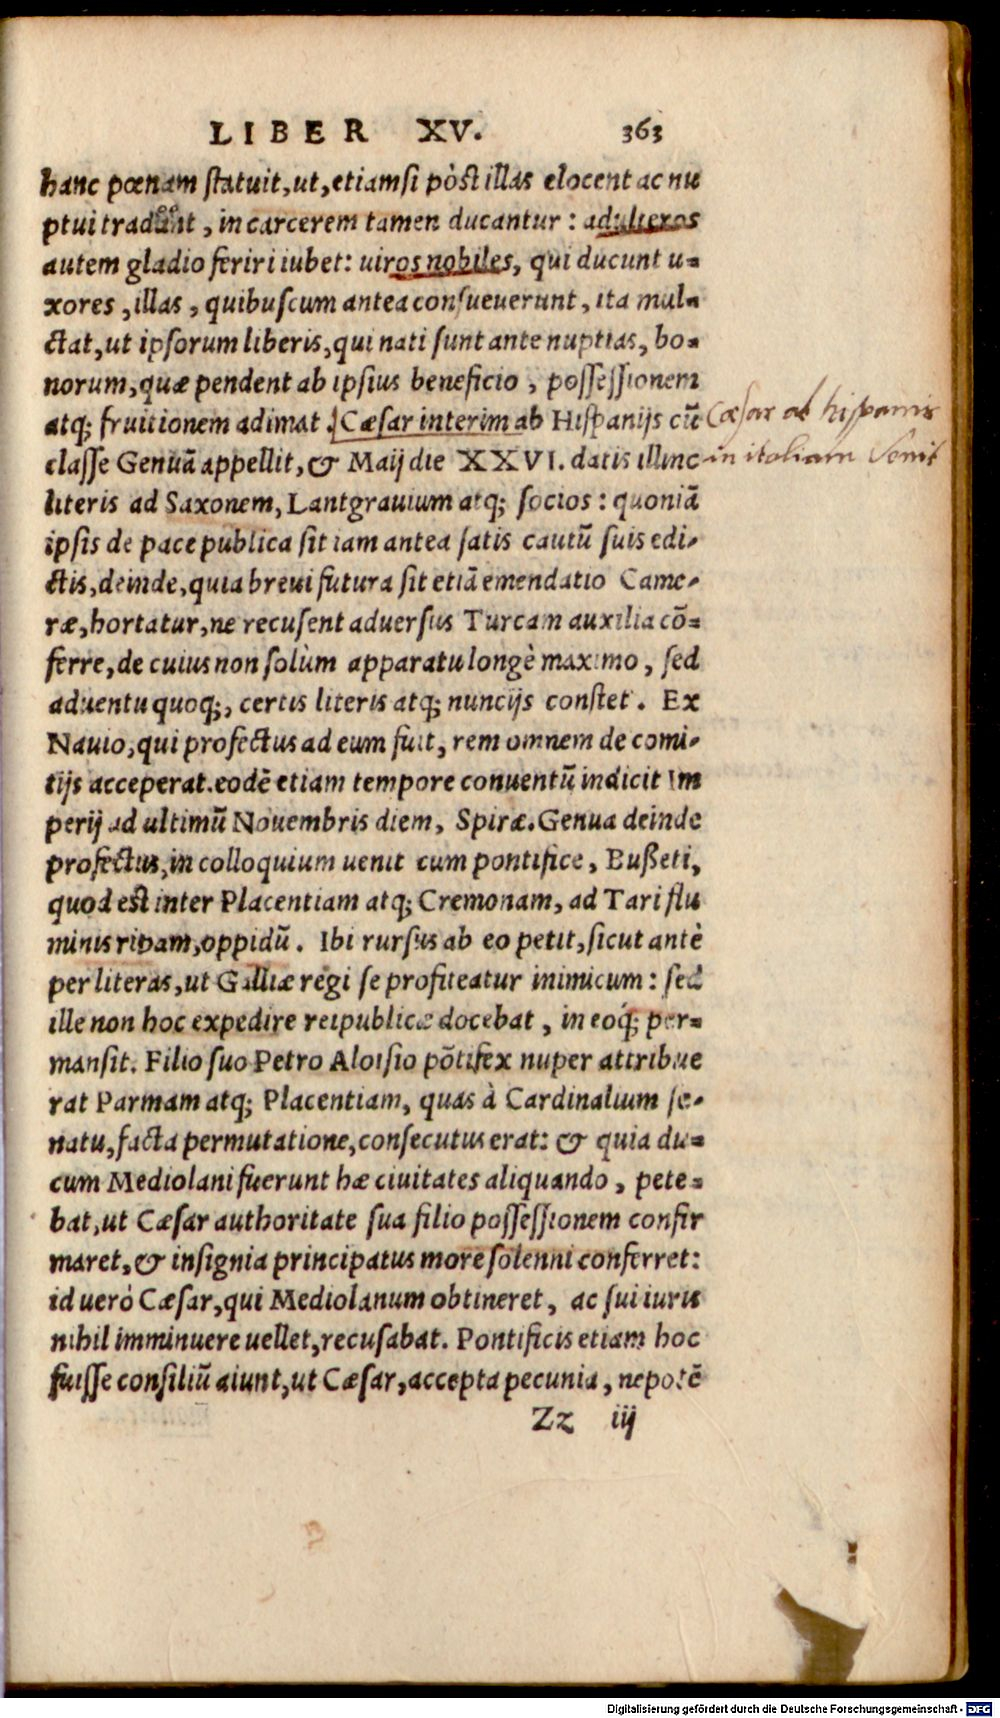 LIBER XV. 363
hanc pœnam statuit, ut, etiamsi pòst illas elocent ac nu
ptui tradant, in carcerem tamen ducantur: adulteros
autem gladio feriri iubet: uiros nobiles, qui ducunt u-
xores, illas, quibuscum antea consueuerunt, ita mul-
ctat, ut ipsorum liberis, qui nati sunt ante nuptias, bo-
norum, quæ pendent ab ipsius beneficio, possessionem
atq; fruitionem adimat. Cæsar interim ab Hispanijs cũ
Cæsar ab hispanis
classe Genuã appellit, & Maij die XXVI. datis illinc
in italiam venit
literis ad Saxonem, Lantgrauium atq; socios: quoniã
ipsis de pace publica sit iam antea satis cautũ suis edi-
ctis, deinde, quia breui futura sit etiã emendatio Came-
ræ, hortatur, ne recusent aduersus Turcam auxilia cõ-
ferre, de cuius non solùm apparatu longè maximo, sed
aduentu quoq;, certis literis atq; nuncijs constet. Ex
Nauio, qui profectus ad eum fuit, rem omnem de comi-
tijs acceperat. eodẽ etiam tempore conuentũ indicit Im
perij ad ultimũ Nouembris diem, Spiræ. Genua deinde
profectus, in colloquium uenit cum pontifice, Bußeti,
quod est inter Placentiam atq; Cremonam, ad Tari flu
minis ripam, oppidũ. Ibi rursus ab eo petit, sicut antè
per literas, ut Galliæ regi se profiteatur inimicum: sed
ille non hoc expedire reipublicæ docebat, in eoq́; per-
mansit. Filio suo Petro Aloisio põtifex nuper attribue
rat Parmam atq; Placentiam, quas à Cardinalium se-
natu, facta permutatione, consecutus erat: & quia du-
cum Mediolani fuerunt hæ ciuitates aliquando, pete-
bat, ut Cæsar authoritate sua filio possessionem confir
maret, & insignia principatus more solenni conferret:
id uerò Cæsar, qui Mediolanum obtineret, ac sui iuris
nihil imminuere uellet, recusabat. Pontificis etiam hoc
fuisse consiliũ aiunt, ut Cæsar, accepta pecunia, nepotẽ
Zz iij
Digitalisierung gefördert durch die Deutsche Forschungsgemeinschaft - DFG